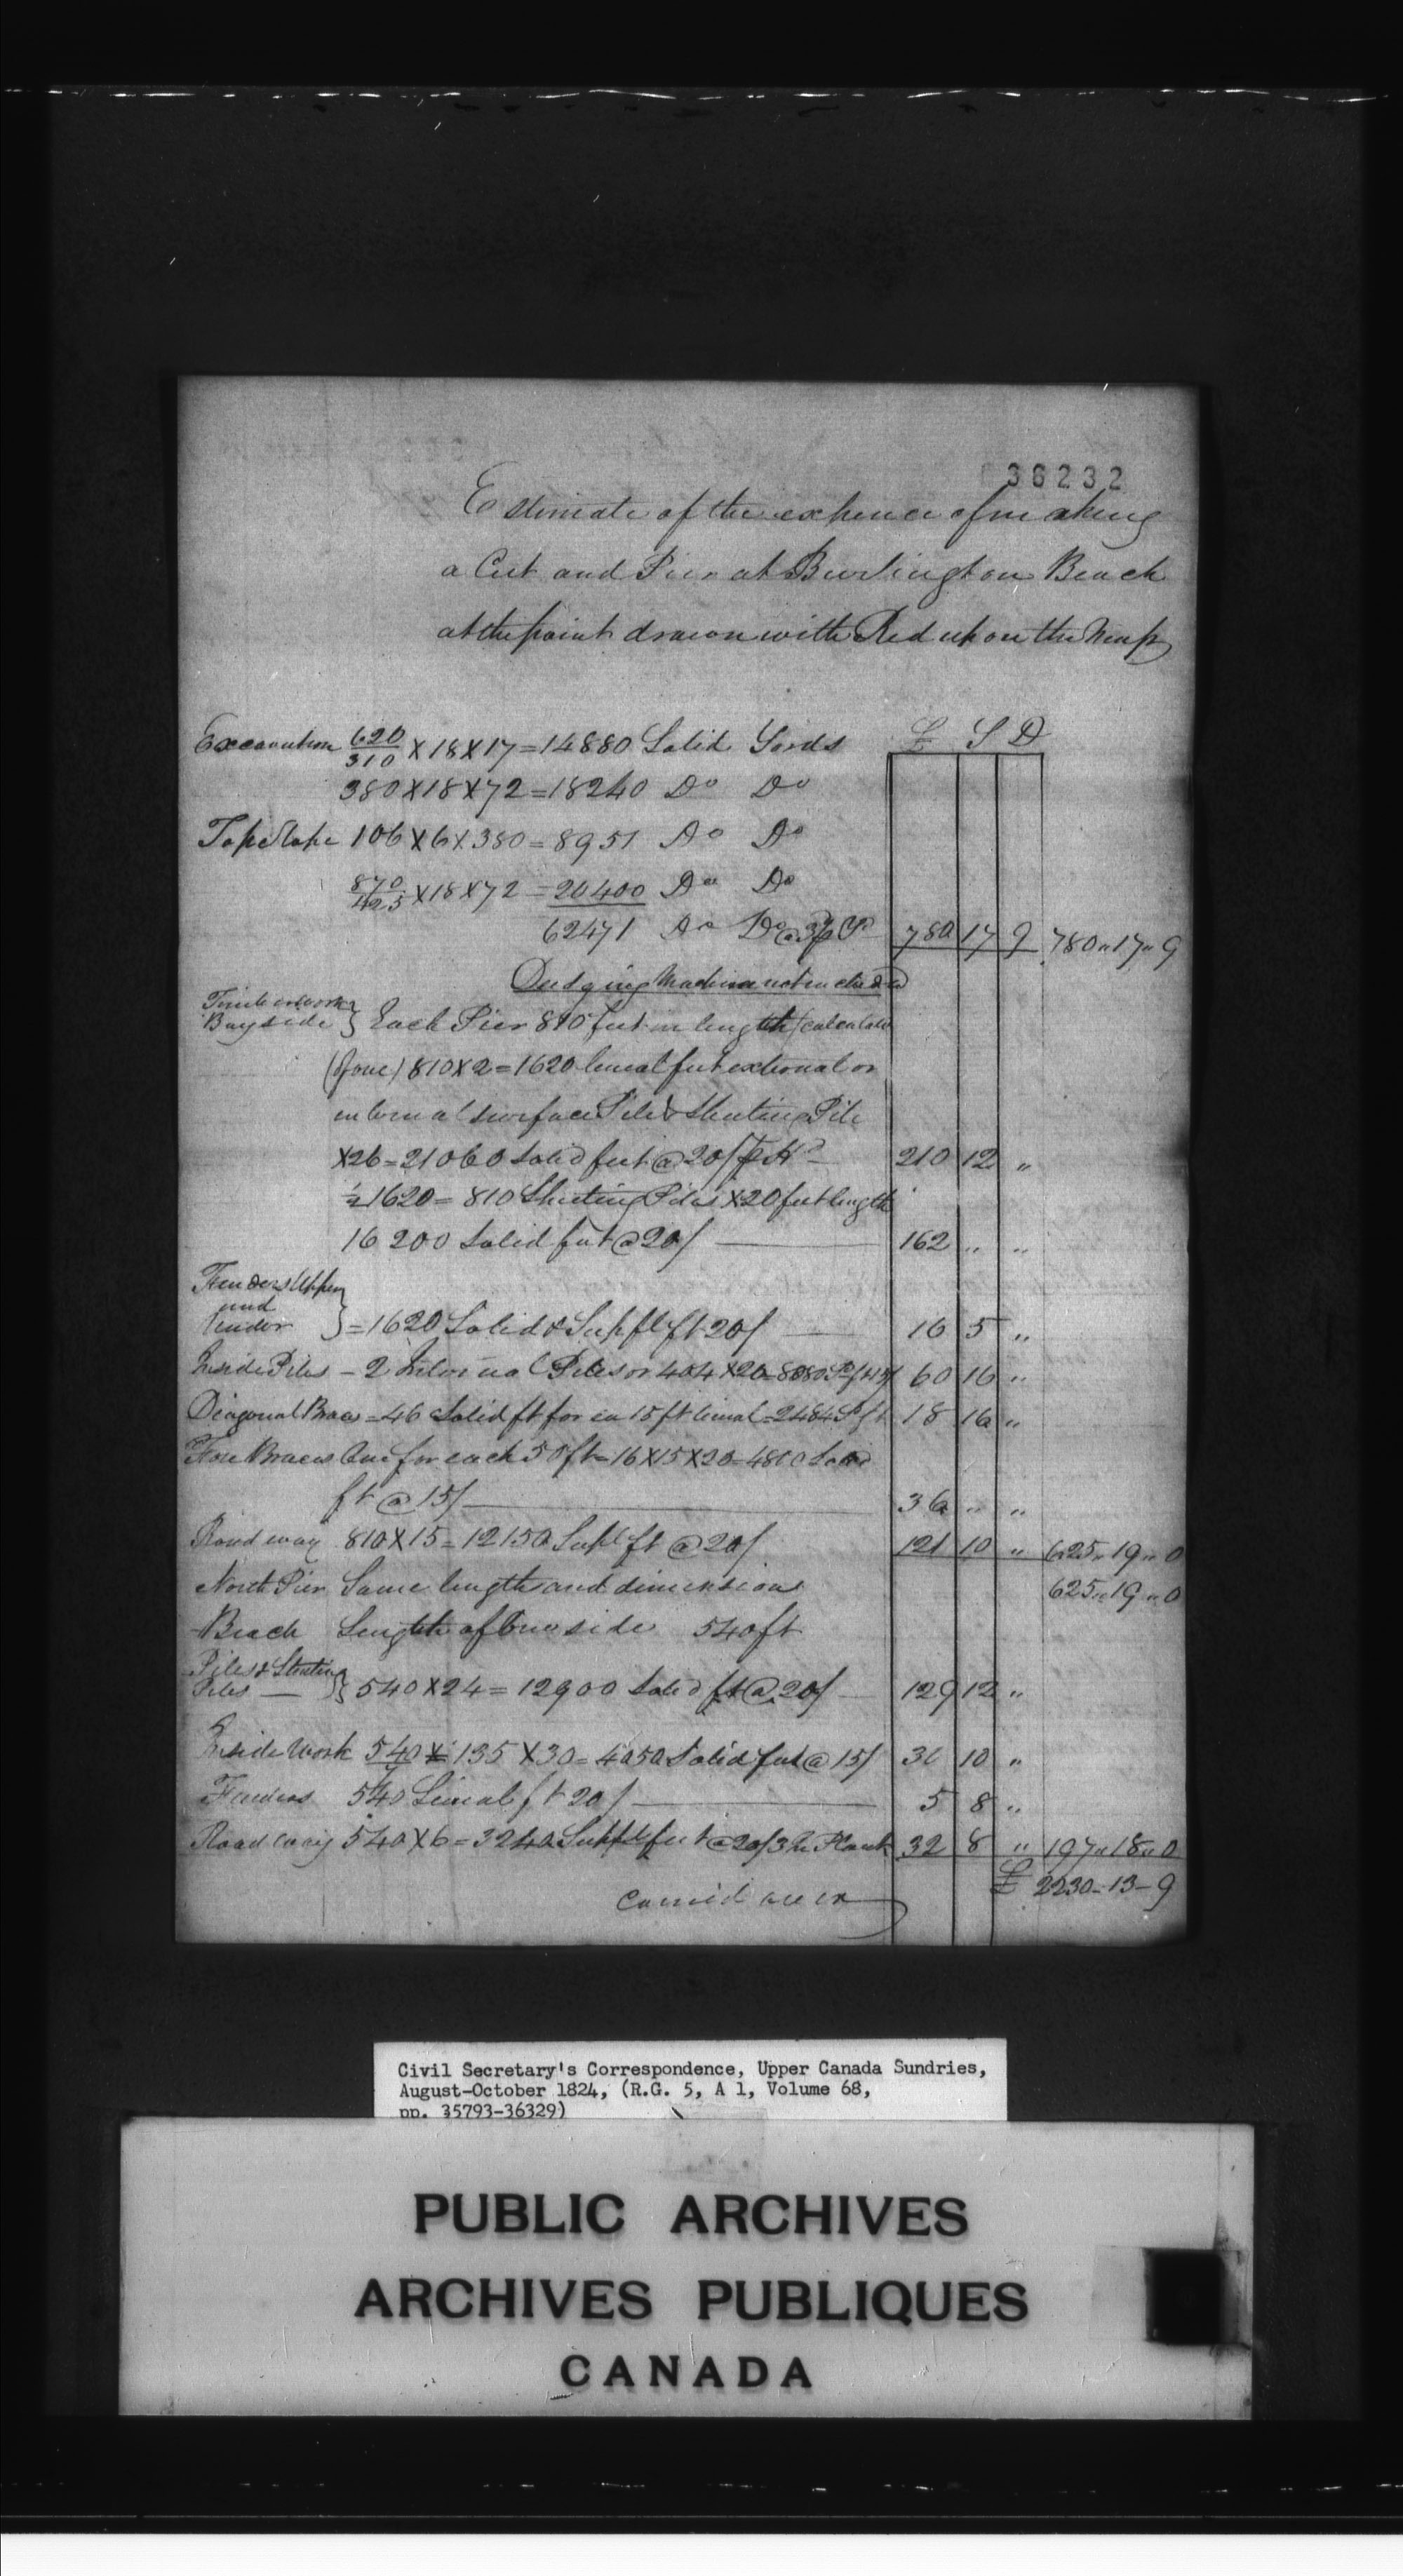 36232
Estimate of the expence of making
a Cut and Pier at Burlington Beach
at the point drawn with Red upon the Map
£ S D
Excavation 620/310 X 18 X 17 = 14880 Solid Yards
380 X 18 X 72 = 18240 Do Do
Top Slope 106 X 6 X 380 = 8951 Do Do
870/425 X 18 X 72 = 20400 Do Do
62471 Do Do @ 3d 780 17 9 780 " 17 " 9
Dredging Machine not included
Timber work
Bay side } Each Pier 810 feet in length (calculate
(of one) 810 X 2 = 1620 lineal feet external or
internal surface Pile & Sheeting Pile
X 26 = 21060 Solid feet @ 20/ 210 12 "
½ 1620 = 810 Sheeting Piles X 20 feet length
16200 Solid feet @ 20/ 162 " "
Fenders Upper
and
Under } = 1620 Solid & Suppl ft 20/ 16 5 "
Inside Piles - 2 Internal Piles or 404 X 20 = 8080 S ft 15/ 60 16 "
Diagonal Braces = 46 Solid ft for ea 15 ft lineal = 2484 S ft 18 16 "
Braces One for each 50 ft = 16 X 15 X 20 = 4800 Solid
ft @ 15/ 36 " "
Road way 810 X 15 = 12150 Supl ft @ 20/ 121 10 " 625 " 19 " 0
North Pier Same length and dimensions 625 " 19 " 0
Beach Length of One side 540 ft
Piles & Sheeting
Piles } 540 X 24 = 12900 Solid ft @ 20/ 129 12 "
Inside Work 540/4 = 135 X 30 = 4050 Solid feet @ 15/ 30 10 "
Fenders 540 Lineal ft 20/ 5 8 "
Road way 540 X 6 = 3240 Suppl feet @ 20/ 3 In Plank 32 8 " 197 " 18 " 0
£ 2230 - 13 - 9
carried over
Civil Secretary's Correspondence, Upper Canada Sundries,
August-October 1824, (R.G. 5, A 1, Volume 68,
pp. 35793-36329)
PUBLIC ARCHIVES
ARCHIVES PUBLIQUES
CANADA